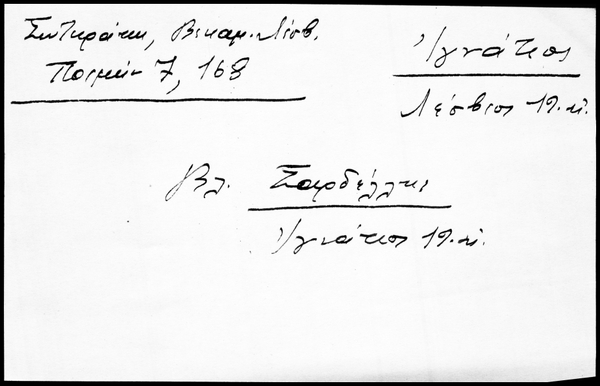 Σωτηράκη, Βικαρ. Λέσβ.
Ποιμήν 7, 168
Ἰγνάτιος
Λέσβιος 19. αἰ.
Βλ. Σαρδέλλης
Ἰγνάτιος 19. αἰ.